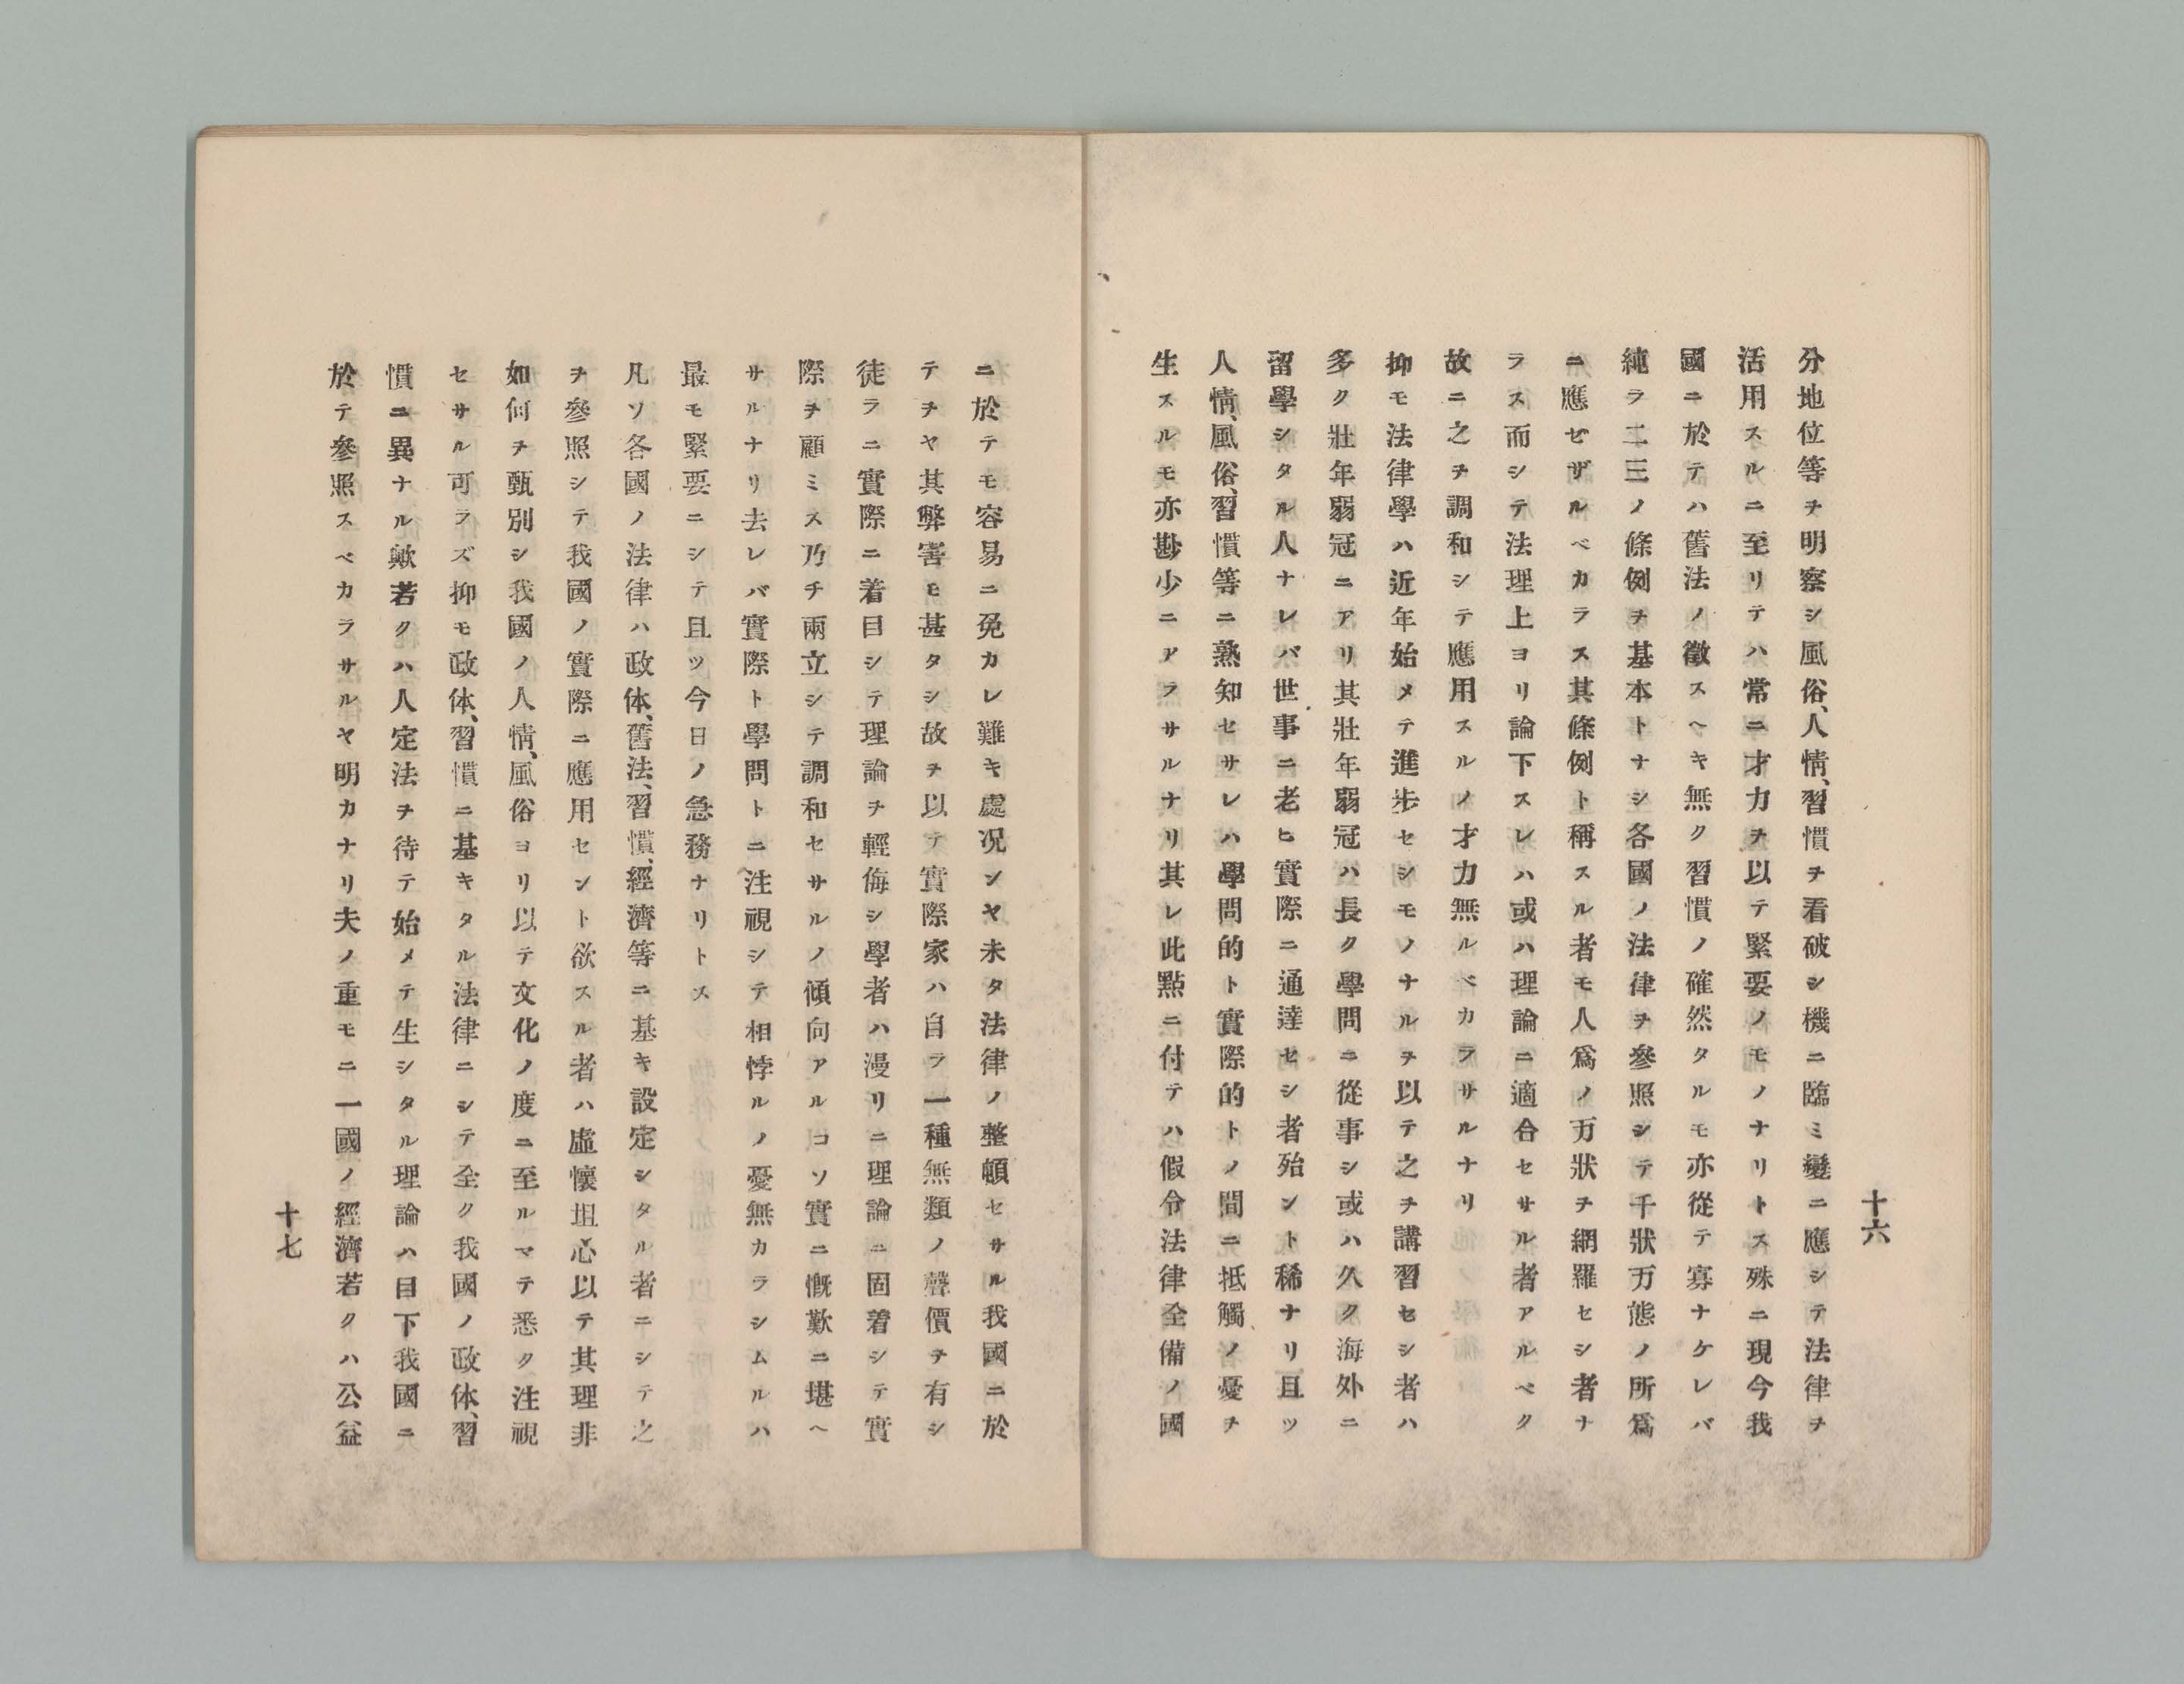 十六
分地位等ヲ明察シ風俗、人情、習慣ヲ看破シ機ニ臨ミ變ニ應シテ法律ヲ
活用スルニ至リテハ常ニ才力ヲ以テ緊要ノモノナリトス殊ニ現今我
國ニ於テハ舊法ノ徵スヘキ無ク習慣ノ確然タルモ亦從テ寡ナケレバ
純ラ二三ノ條例ヲ基本トナシ各國ノ法律ヲ參照シテ千狀万態ノ所爲
ニ應ゼザルベカラス其條例ト稱スル者モ人爲ノ万狀ヲ網羅セシ者ナ
ラス而シテ法理上ヨリ論下スレハ或ハ理論ニ適合セサル者アルベク
故ニ之ヲ調和シテ應用スルノ才力無ルベカラサルナリ
抑モ法律學ハ近年始メテ進步セシモノナルヲ以テ之ヲ講習セシ者ハ
多ク壯年弱冠ニアリ其壯年弱冠ハ長ク學問ニ從事シ或ハ久ク海外ニ
留學シタル人ナレバ世事ニ老ヒ實際ニ通達セシ者殆ント稀ナリ且ツ
人情、風俗、習慣等ニ熟知セサレハ學問的ト實際的トノ間ニ抵觸ノ憂ヲ
生スルモ亦尠少ニアラサルナリ其レ此點ニ付テハ假令法律全備ノ國
ニ於テモ容易ニ免カレ難キ處况ンヤ未タ法律ノ整頓セサル我國ニ於
テヲヤ其弊害モ甚タシ故ヲ以テ實際家ハ自ラ一種無類ノ聲價ヲ有シ
徒ラニ實際ニ着目シテ理論ヲ輕侮シ學者ハ漫リニ理論ニ固着シテ實
際ヲ顧ミス乃チ兩立シテ調和セサルノ傾向アルコソ實ニ慨歎ニ堪ヘ
サルナリ去レバ實際ト學問トニ注視シテ相悖ルノ憂無カラシムルハ
最モ緊要ニシテ且ツ今日ノ急務ナリトス
凡ソ各國ノ法律ハ政体、舊法、習慣、經濟等ニ基キ設定シタル者ニシテ之
ヲ參照シテ我國ノ實際ニ應用セント欲スル者ハ虛懷坦心以テ其理非
如何ヲ甄別シ我國ノ人情、風俗ヨリ以テ文化ノ度ニ至ルマテ悉ク注視
セサル可ラズ抑モ政体、習慣ニ基キタル法律ニシテ全ク我國ノ政体、習
慣ニ異ナル歟若クハ人定法ヲ待テ始メテ生シタル理論ハ目下我國ニ
於テ參照スベカラサルヤ明カナリ夫ノ重モニ一國ノ經濟若クハ公益
十七